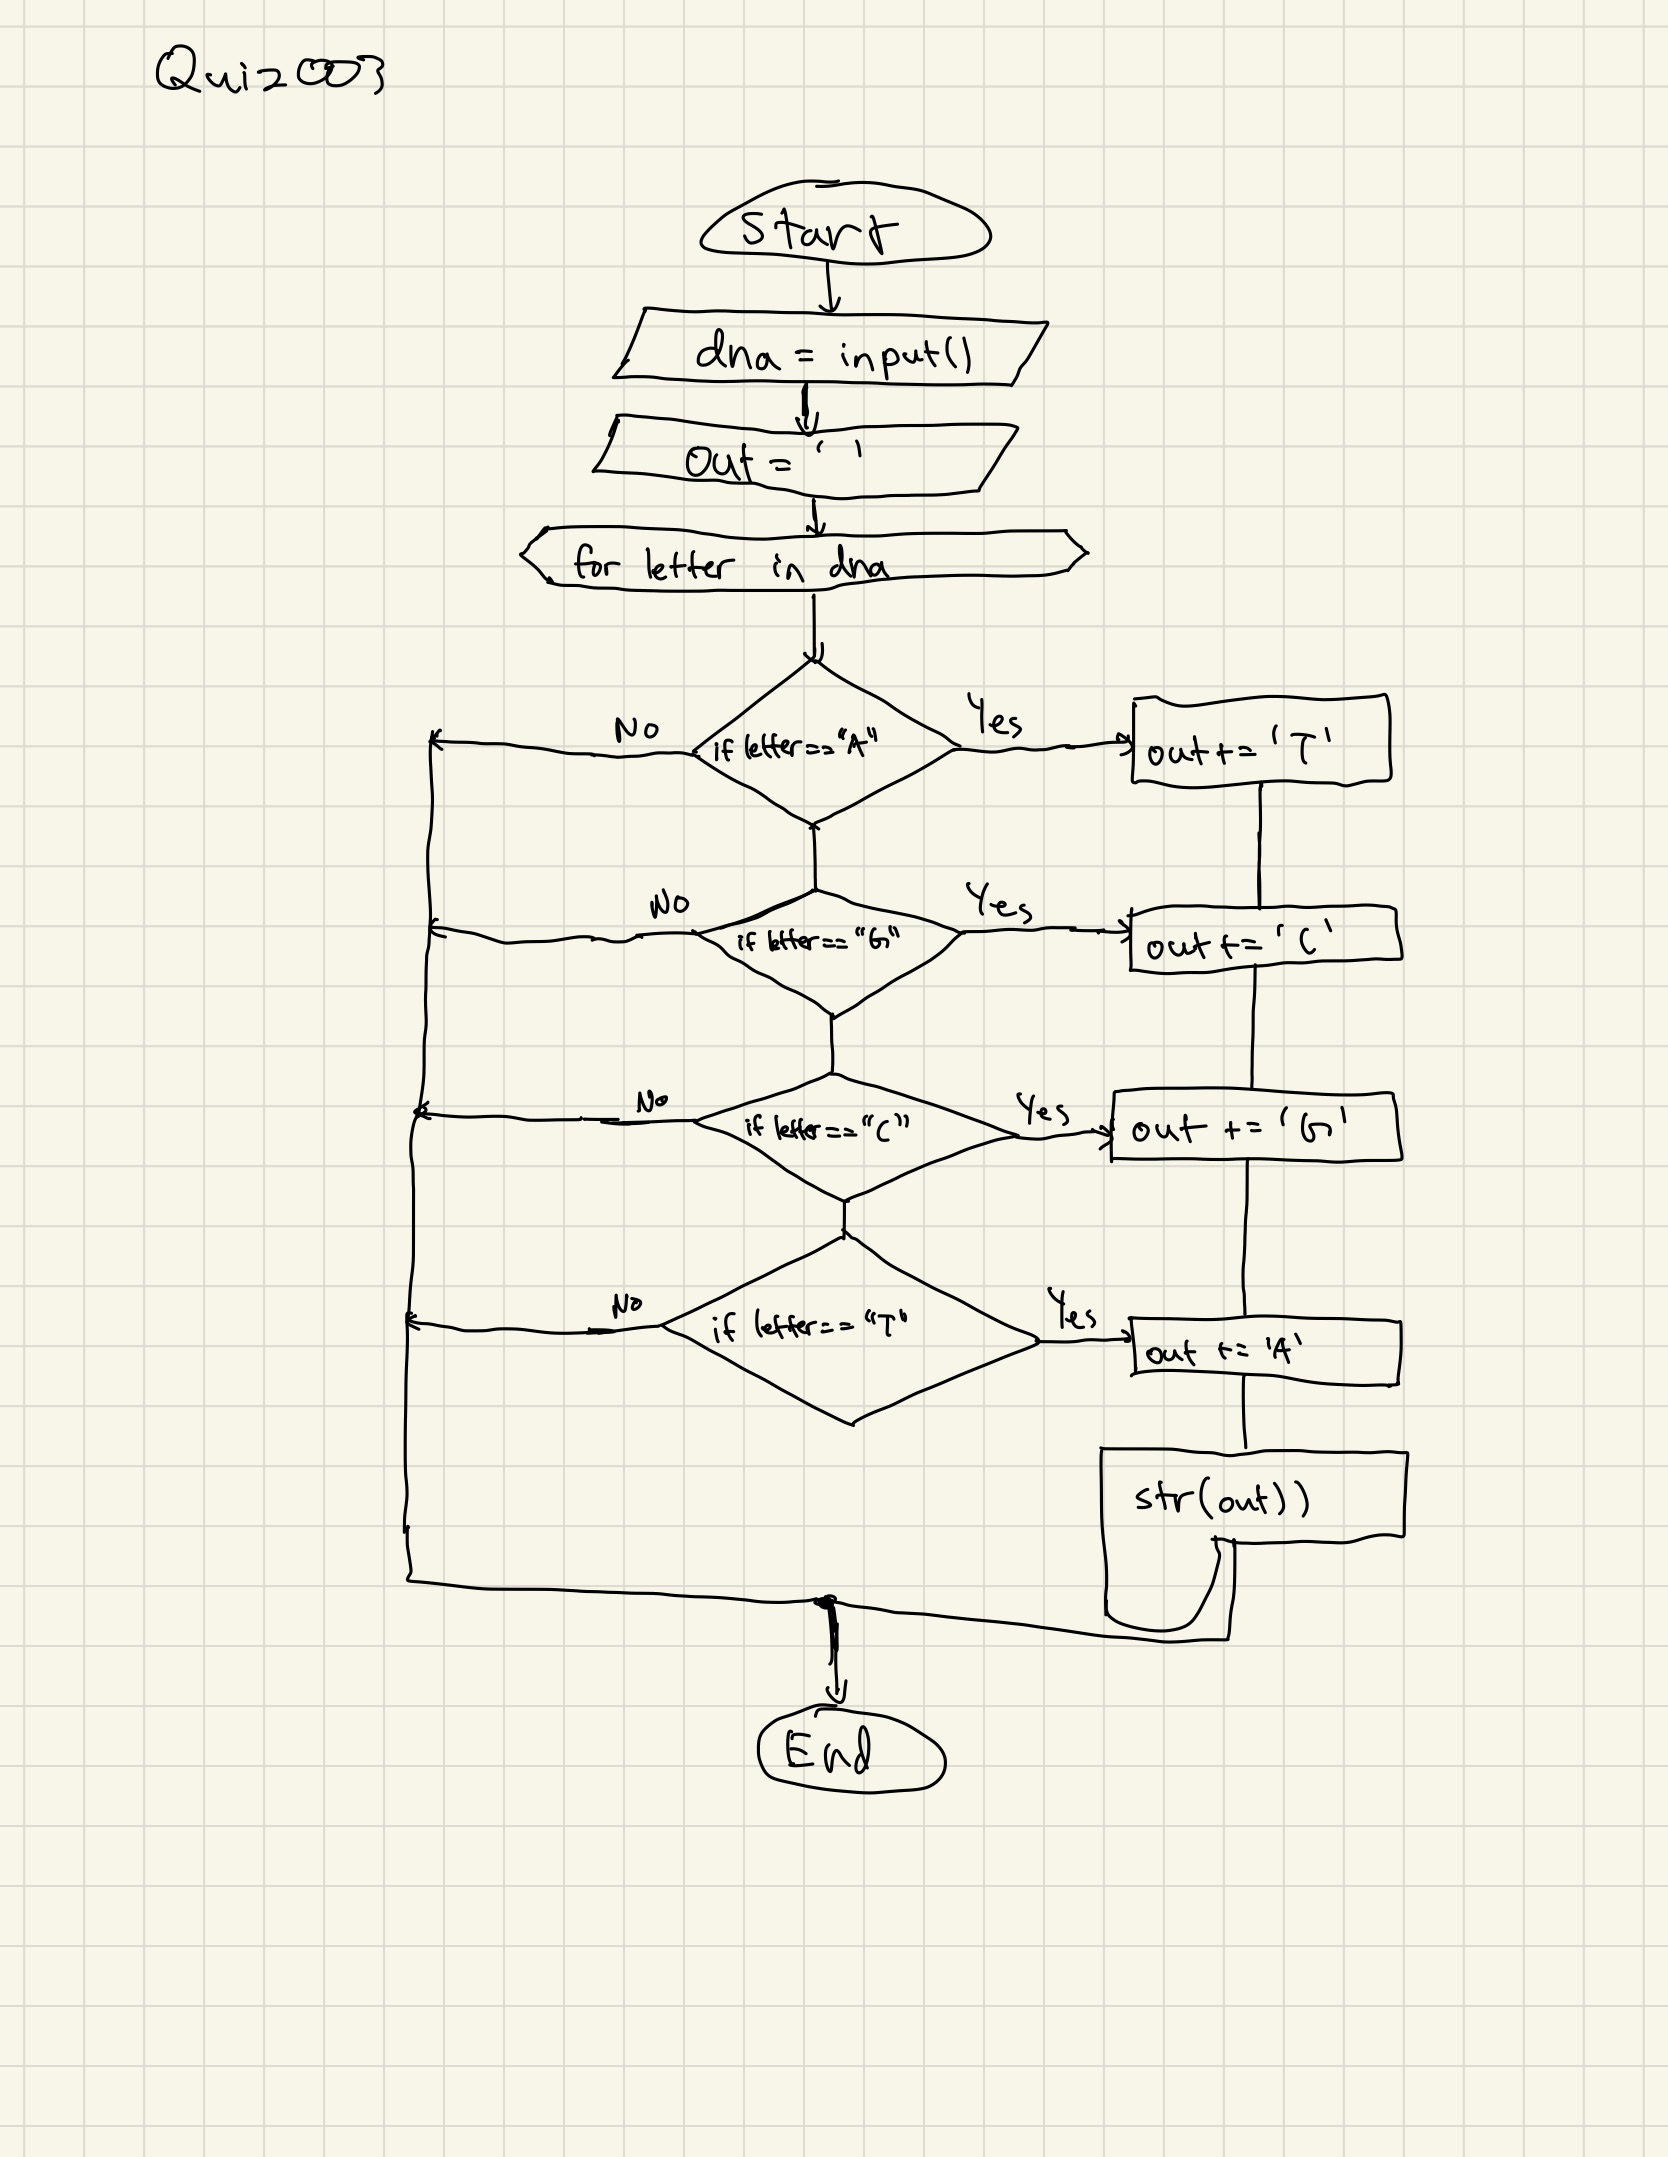 Quiz003
Start
dna = input()
Out = ' '
for letter in dna
No
if letter=="A"
Yes
out += 'T'
No
if letter=="G"
Yes
out += 'C'
No
if letter=="C"
Yes
out += 'G'
No
if letter=="T"
Yes
out += 'A'
str(out))
End